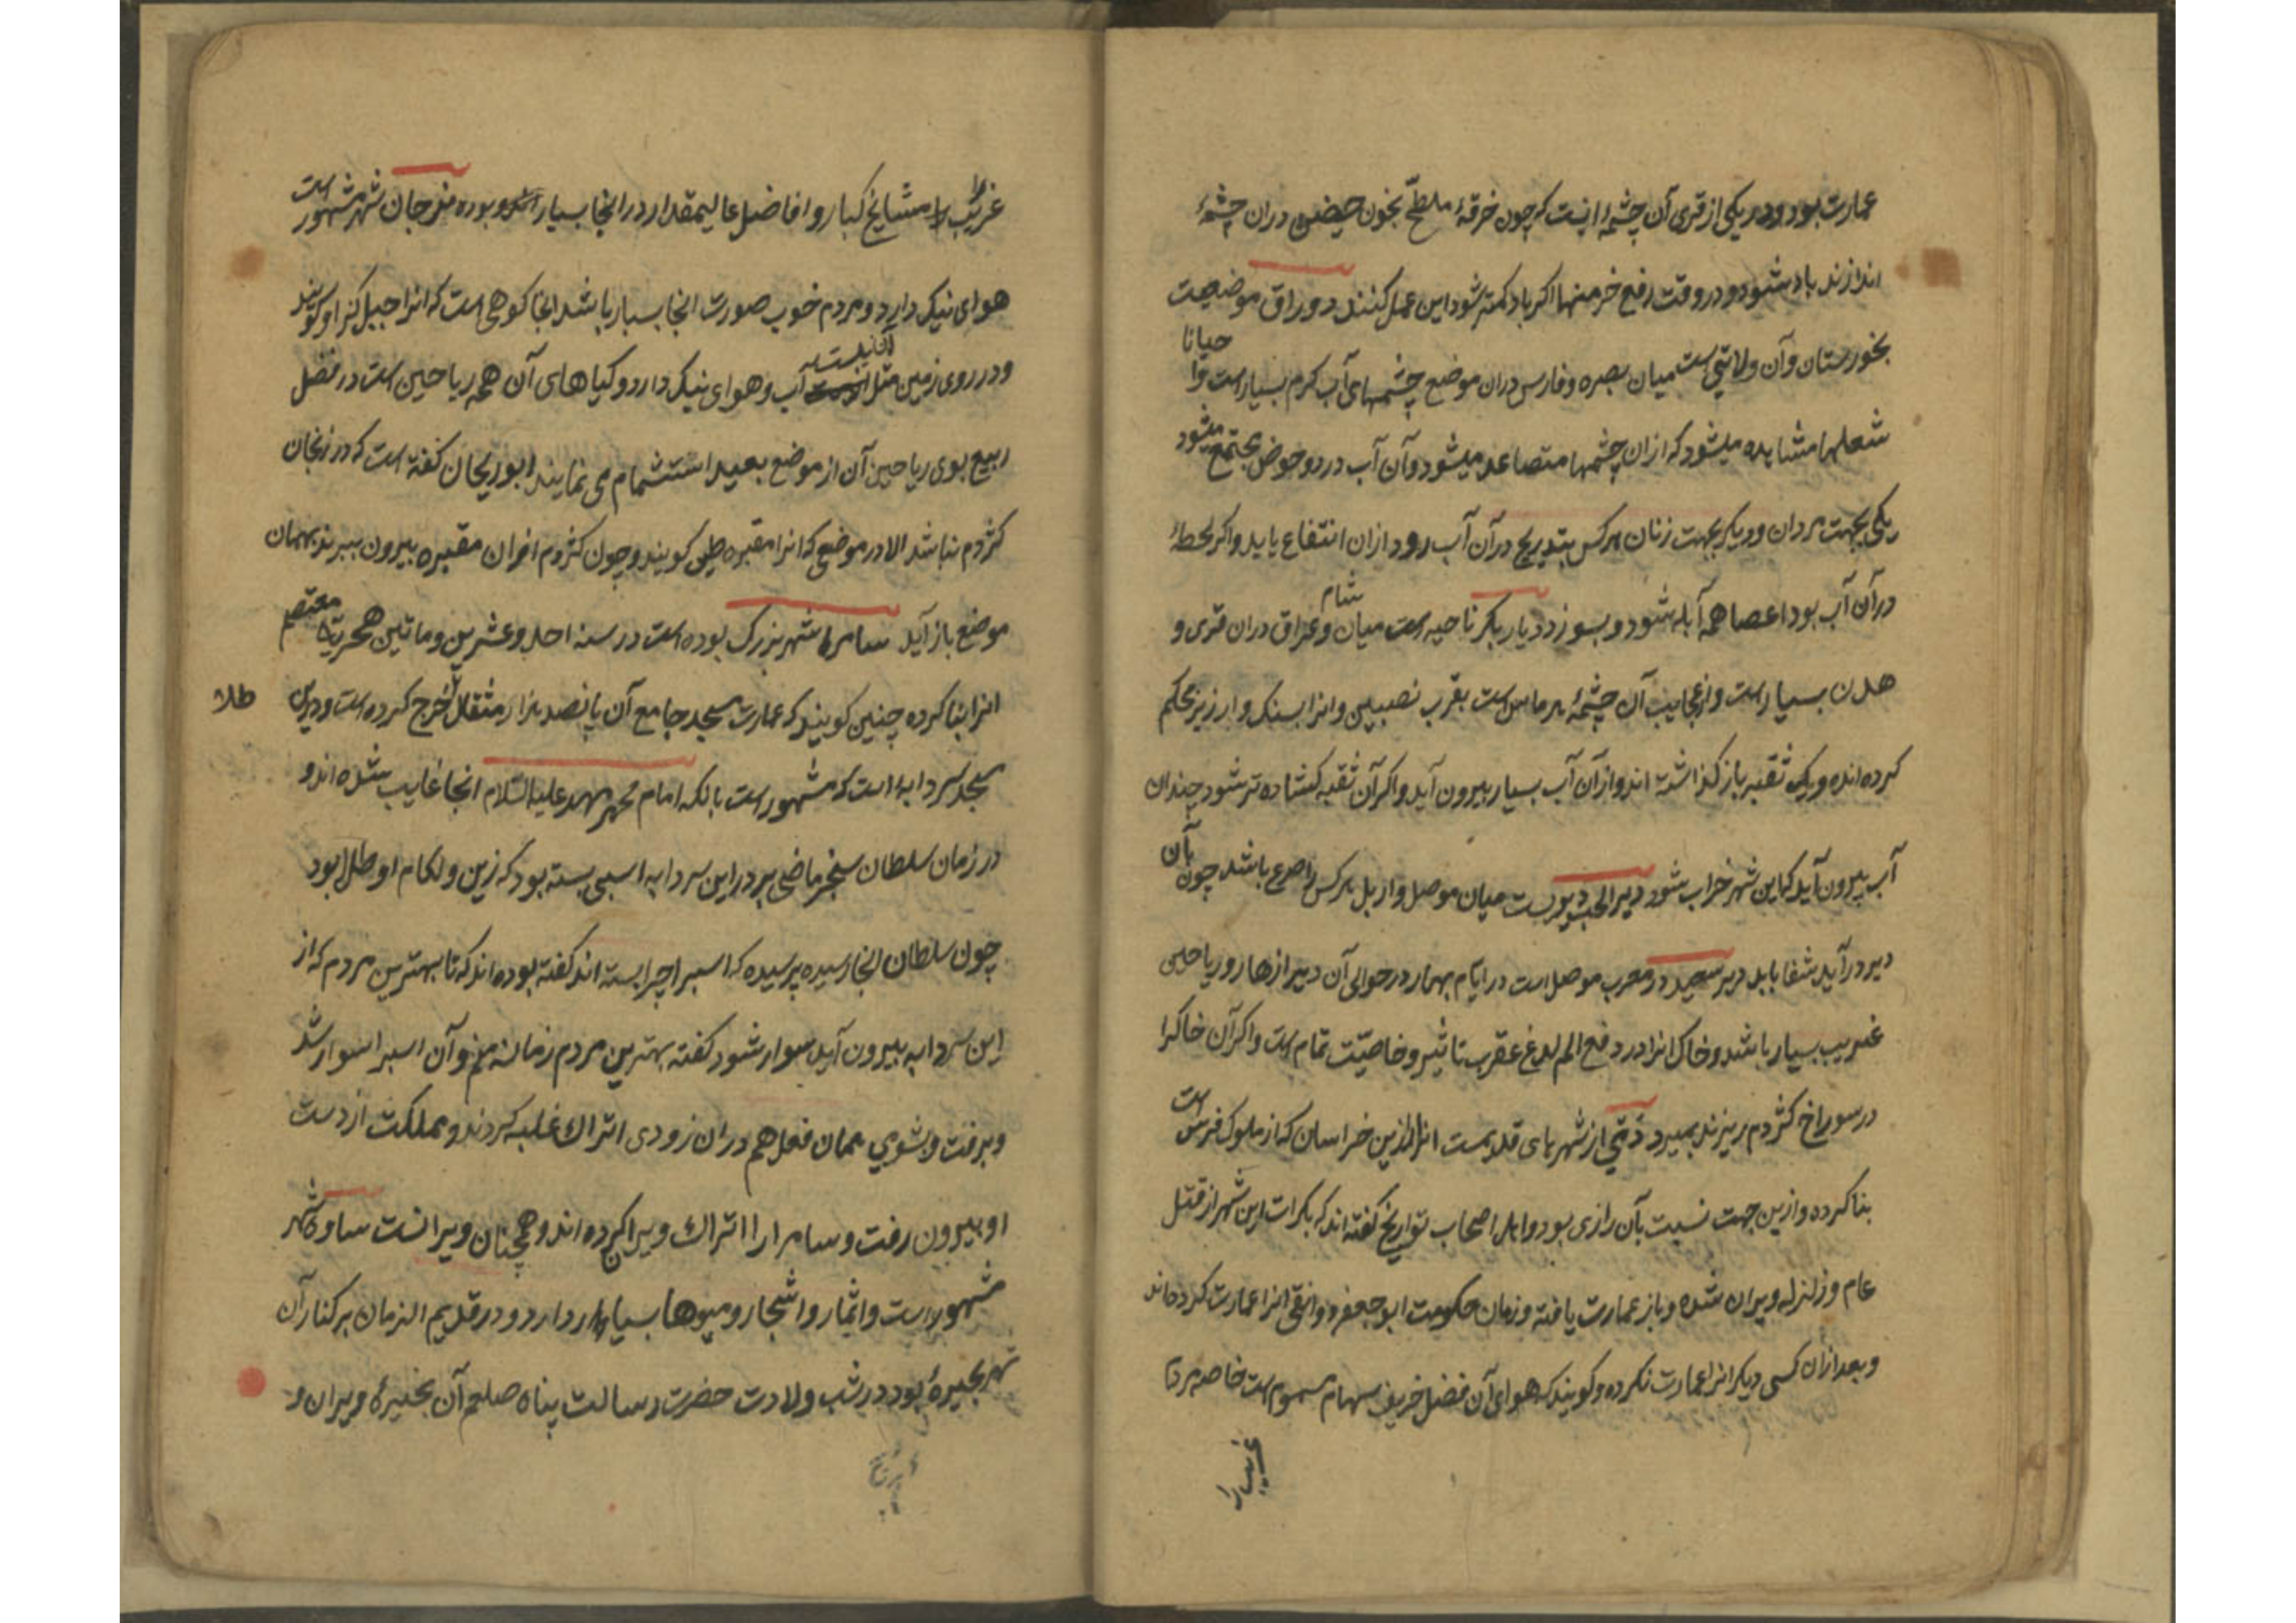 عمارت بود و در یکی از قری آن چشمهٔ است که چون خرقهٔ ملطخ بخون حیض دران چشمهٔ
اندازند باد شود و در وقت رفع خرمنها اکر باد کمتر شود این عمل کنند دوراق موضعیت
بخورستان و آن ولایتی است میان بصره و فارس دران موضع چشمهای آب کرم بسیار است و احیانا
شعلها مشاهده میشود که ازان چشمها متصاعد میشود و آن آب در دو حوض مجتمع میشود
یکی بجهت مردان و دیکر بجهت زنان هر کس بتدریج در آن آب رود ازان انتفاع یابد و اکر لحظهٔ
در آن آب بود اعضا همه آبله شود و بسوزد دیار بکر ناحیه است میان شام و عراق دران قری و
مدن بسیار است و از عجایب آن چشمهٔ هرماس است بقرب نصیبین و انرا بسنک و ارزیز محکم
کرده اند و یک ثقبه باز کذاشته اند و از آن آب بسیار بیرون آید و اکر آن ثقبه کشاده تر شود چندان
آب بیرون آید که این شهر خراب شود دیر الجب دیریست میان موصل و اربل هر کس را صرع باشد چون بآن
دیر درآید شفا یابد دیر سعید در مغرب موصل است در ایام بهار در حوالی آن دیر ازهار و ریاحین
غریب بسیار باشد و خاک انرا در دفع الم لدغ عقرب تاثیر و خاصیت تمام است و اکر آن خاک را
در سوراخ کژدم بریزند بمیرد از شهرهای قدیمست انرا خراسان که از ملوک فرس است
بنا کرده و ازین جهت نسبت بآن رازی بود و اصحاب تواریخ کفته اند که بکرات این شهر از قتل
عام و زلزله ویران شده و باز عمارت یافته و زمان حکومت ابو جعفر دوانقی انرا عمارت کرده اند
و بعد ازان کسی دیکر انرا عمارت نکرده و کویند که هوای آن فصل خریف سهام مسموم است خاصه مردم
غریبرا
غریب را مشایخ کبار و افاضل عالیمقدار در انجا بسیار بوده زنجان شهر مشهور است
هوای نیک دارد و مردم خوب صورت انجا بسیار باشد انجا کوهی است که انرا جبل کویند
و در روی زمین مثل آن نیست آب و هوای نیک دارد و کیاهای آن همه ریاحین است در فصل
ربیع بوی ریاحین آن از موضع بعید استشمام می نمایند ابو ریحان کفته است که در زنجان
کژدم نباشد الا در موضعی که انرا مقبره طی کویند و چون کژدم ازان مقبره بیرون ببرند بهمان
موضع باز آید سامره شهر بزرک بوده است در سنه احد و عشرین و ماتین هجریة معتصم
انرا بنا کرده چنین کویند که عمارت مسجد جامع آن پانصد هزار مثقال خرج کرده است و درین
طلا
مسجد سردابه است که مشهور است بآنکه امام محمد مهدی علیه السلام انجا غایب شده اند و
در زمان سلطان سنجر ماضی بر در این سردابه اسبی بسته بود که زین و لکام او طلا بود
چون سلطان انجا رسیده پرسیده که اسب را چرا بسته اند کفته بوده اند که تا بهترین مردم که از
این سردابه بیرون آید سوار شود کفته بهترین مردم زمانه منم و آن اسب را سوار شد
و برفت و بشومی همان فعل هم دران زودی اتراک غلبه کردند و مملکت از دست
او بیرون رفت و سامرا را اتراک ویران کرده اند و همچنان ویرانست ساوه شهر
مشهور است و اثمار و اشجار و میوها بسیار دارد و در قدیم الزمان بر کنار آن
شهر بحیرهٔ بود در شب ولادت حضرت رسالت پناه صلعم آن بحیرهٔ ویران و